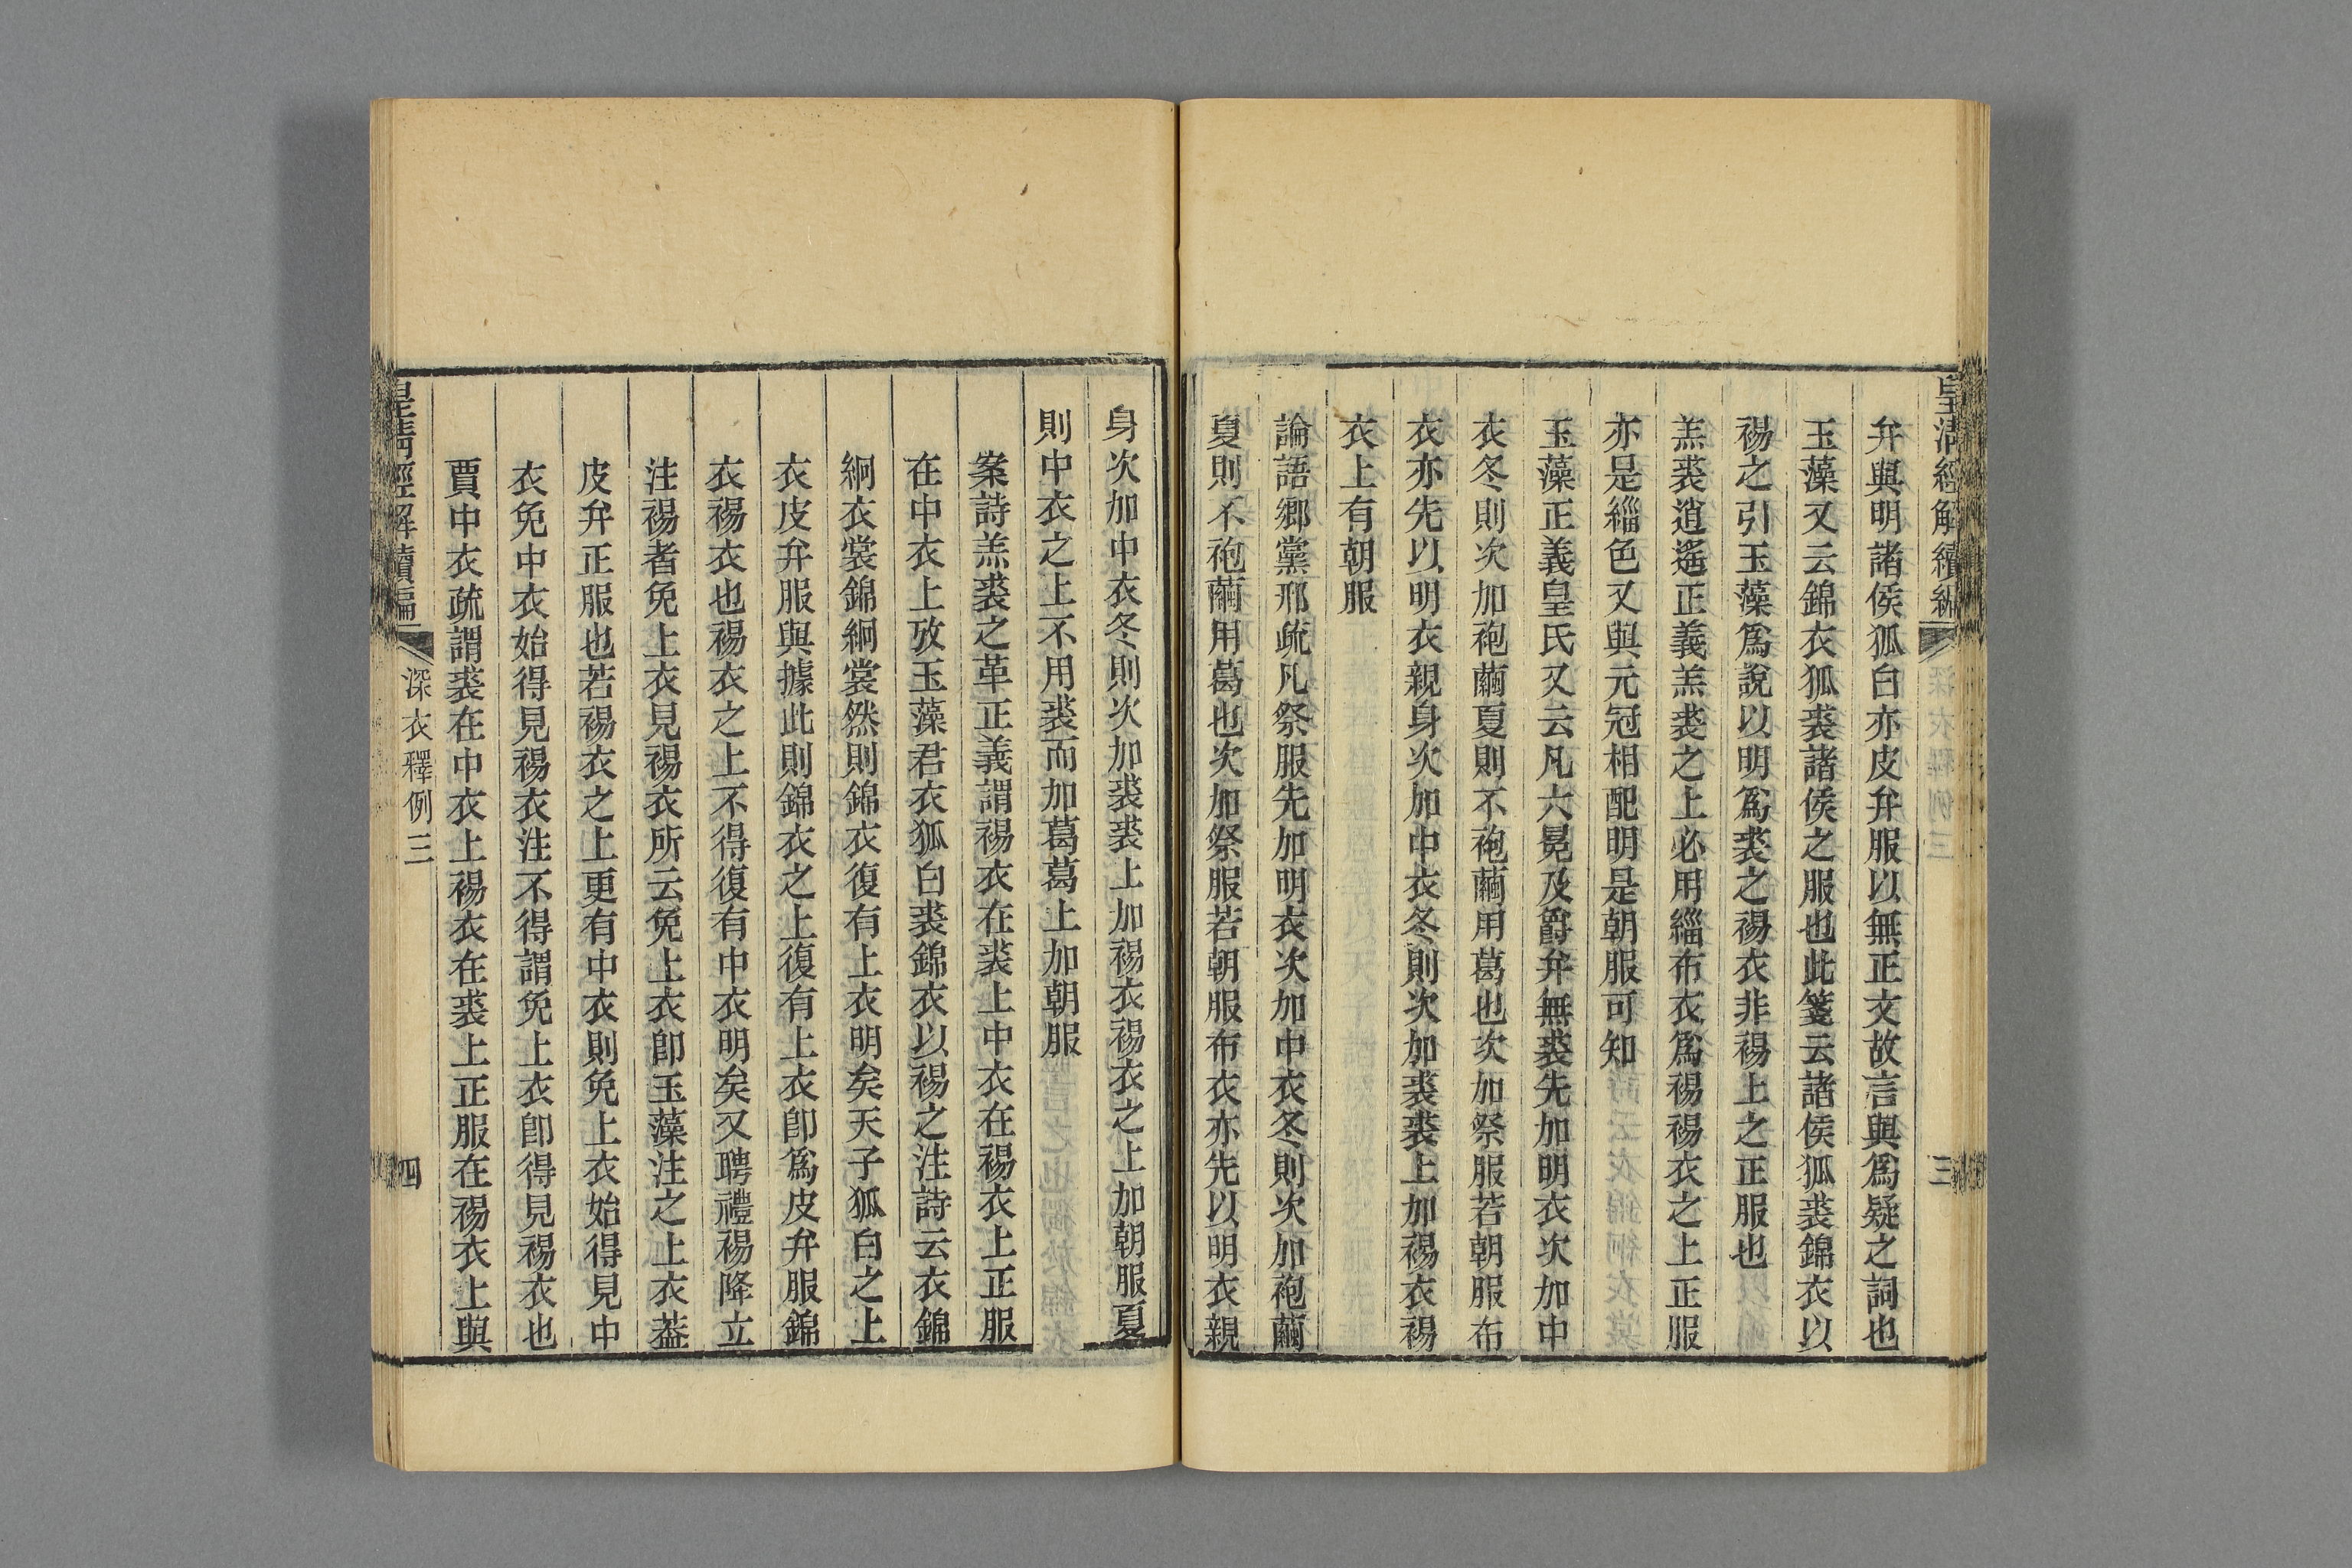 皇清經解續編
三
弁與明諸侯狐白亦皮弁服以無正文故言與爲疑之詞也
玉藻又云錦衣狐裘諸侯之服也此箋云諸侯狐裘錦衣以
裼之引玉藻爲說以明爲裘之裼衣非裼上之正服也
羔裘逍遙正義羔裘之上必用緇布衣爲裼裼衣之上正服
亦是緇色又與元冠相配明是朝服可知
玉藻正義皇氏又云凡六冕及爵弁無裘先加明衣次加中
衣冬則次加袍繭夏則不袍繭用葛也次加祭服若朝服布
衣亦先以明衣親身次加中衣冬則次加裘裘上加裼衣裼
衣上有朝服
論語鄉黨邢疏凡祭服先加明衣次加中衣冬則次加袍繭
夏則不袍繭用葛也次加祭服若朝服布衣亦先以明衣親
身次加中衣冬則次加裘裘上加裼衣裼衣之上加朝服夏
則中衣之上不用裘而加葛葛上加朝服
案詩羔裘之革正義謂裼衣在裘上中衣在裼衣上正服
在中衣上攷玉藻君衣狐白裘錦衣以裼之注詩云衣錦
絅衣裳錦絅裳然則錦衣復有上衣明矣天子狐白之上
衣皮弁服與據此則錦衣之上復有上衣卽爲皮弁服錦
衣裼衣也裼衣之上不得復有中衣明矣又聘禮裼降立
注裼者免上衣見裼衣所云免上衣卽玉藻注之上衣葢
皮弁正服也若裼衣之上更有中衣則免上衣始得見中
衣免中衣始得見裼衣注不得謂免上衣卽得見裼衣也
賈中衣疏謂裘在中衣上裼衣在裘上正服在裼衣上與
皇清經解續編
深衣釋例三
四